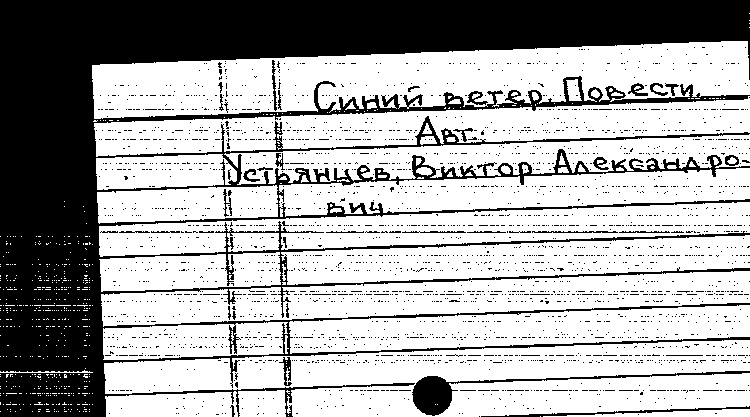 Синий ветер. Повести.
Авт.:
Устьянцев, Виктор Александро-
вич.